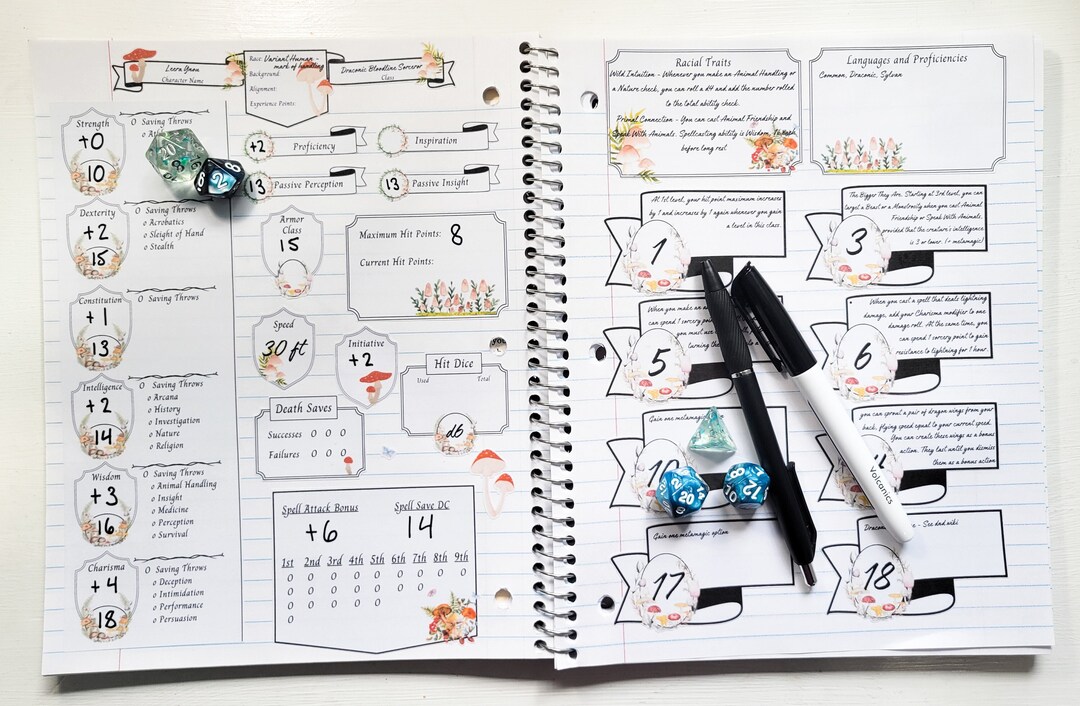 Leera Ynou
Character Name
Race: Variant Human -
mark of handling
Background:
Alignment:
Experience Points:
Draconic Bloodline Sorceror
Class
Strength
+0
10
O Saving Throws
o
20
8
2
Dexterity
+2
15
O Saving Throws
o Acrobatics
o Sleight of Hand
o Stealth
Constitution
+1
13
O Saving Throws
Intelligence
+2
14
O Saving Throws
o Arcana
o History
o Investigation
o Nature
o Religion
Wisdom
+3
16
O Saving Throws
o Animal Handling
o Insight
o Medicine
o Perception
o Survival
Charisma
+4
18
O Saving Throws
o Deception
o Intimidation
o Performance
o Persuasion
+2
Proficiency
Inspiration
13
Passive Perception
13
Passive Insight
Armor
Class
15
Maximum Hit Points: 8
Current Hit Points:
Speed
30 ft
Initiative
+2
Hit Dice
Used Total
d6
Death Saves
Successes O O O
Failures O O O
Spell Attack Bonus
+6
Spell Save DC
14
1st 2nd 3rd 4th 5th 6th 7th 8th 9th
O O O O O O O O O
O O O O O O O
O O O O O
O
Racial Traits
Wild Intuition - Whenever you make an Animal Handling or
a Nature check, you can roll a d4 and add the number rolled
to the total ability check.
Primal Connection - You can cast Animal Friendship and
Speak With Animals. Spellcasting ability is Wisdom.
before long rest
Languages and Proficiencies
Common, Draconic, Sylvan
1
At 1st level, your hit point maximum increases
by 1 and increases by 1 again whenever you gain
a level in this class.
3
The Bigger They Are. Starting at 3rd level, you can
target a Beast or a Monstrosity when you cast Animal
Friendship or Speak With Animals,
provided that the creature's intelligence
is 3 or lower. (+ metamagic)
5
When you make an
can spend 1 sorcery
you must use
turning the
6
When you cast a spell that deals lightning
damage, add your Charisma modifier to one
damage roll. At the same time, you
can spend 1 sorcery point to gain
resistance to lightning for 1 hour.
10
Gain one metamagic
you can sprout a pair of dragon wings from your
back, flying speed equal to your current speed.
You can create these wings as a bonus
action. They last until you dismiss
them as a bonus action
20
12
Volcanics
17
Gain one metamagic option
18
- See dnd wiki